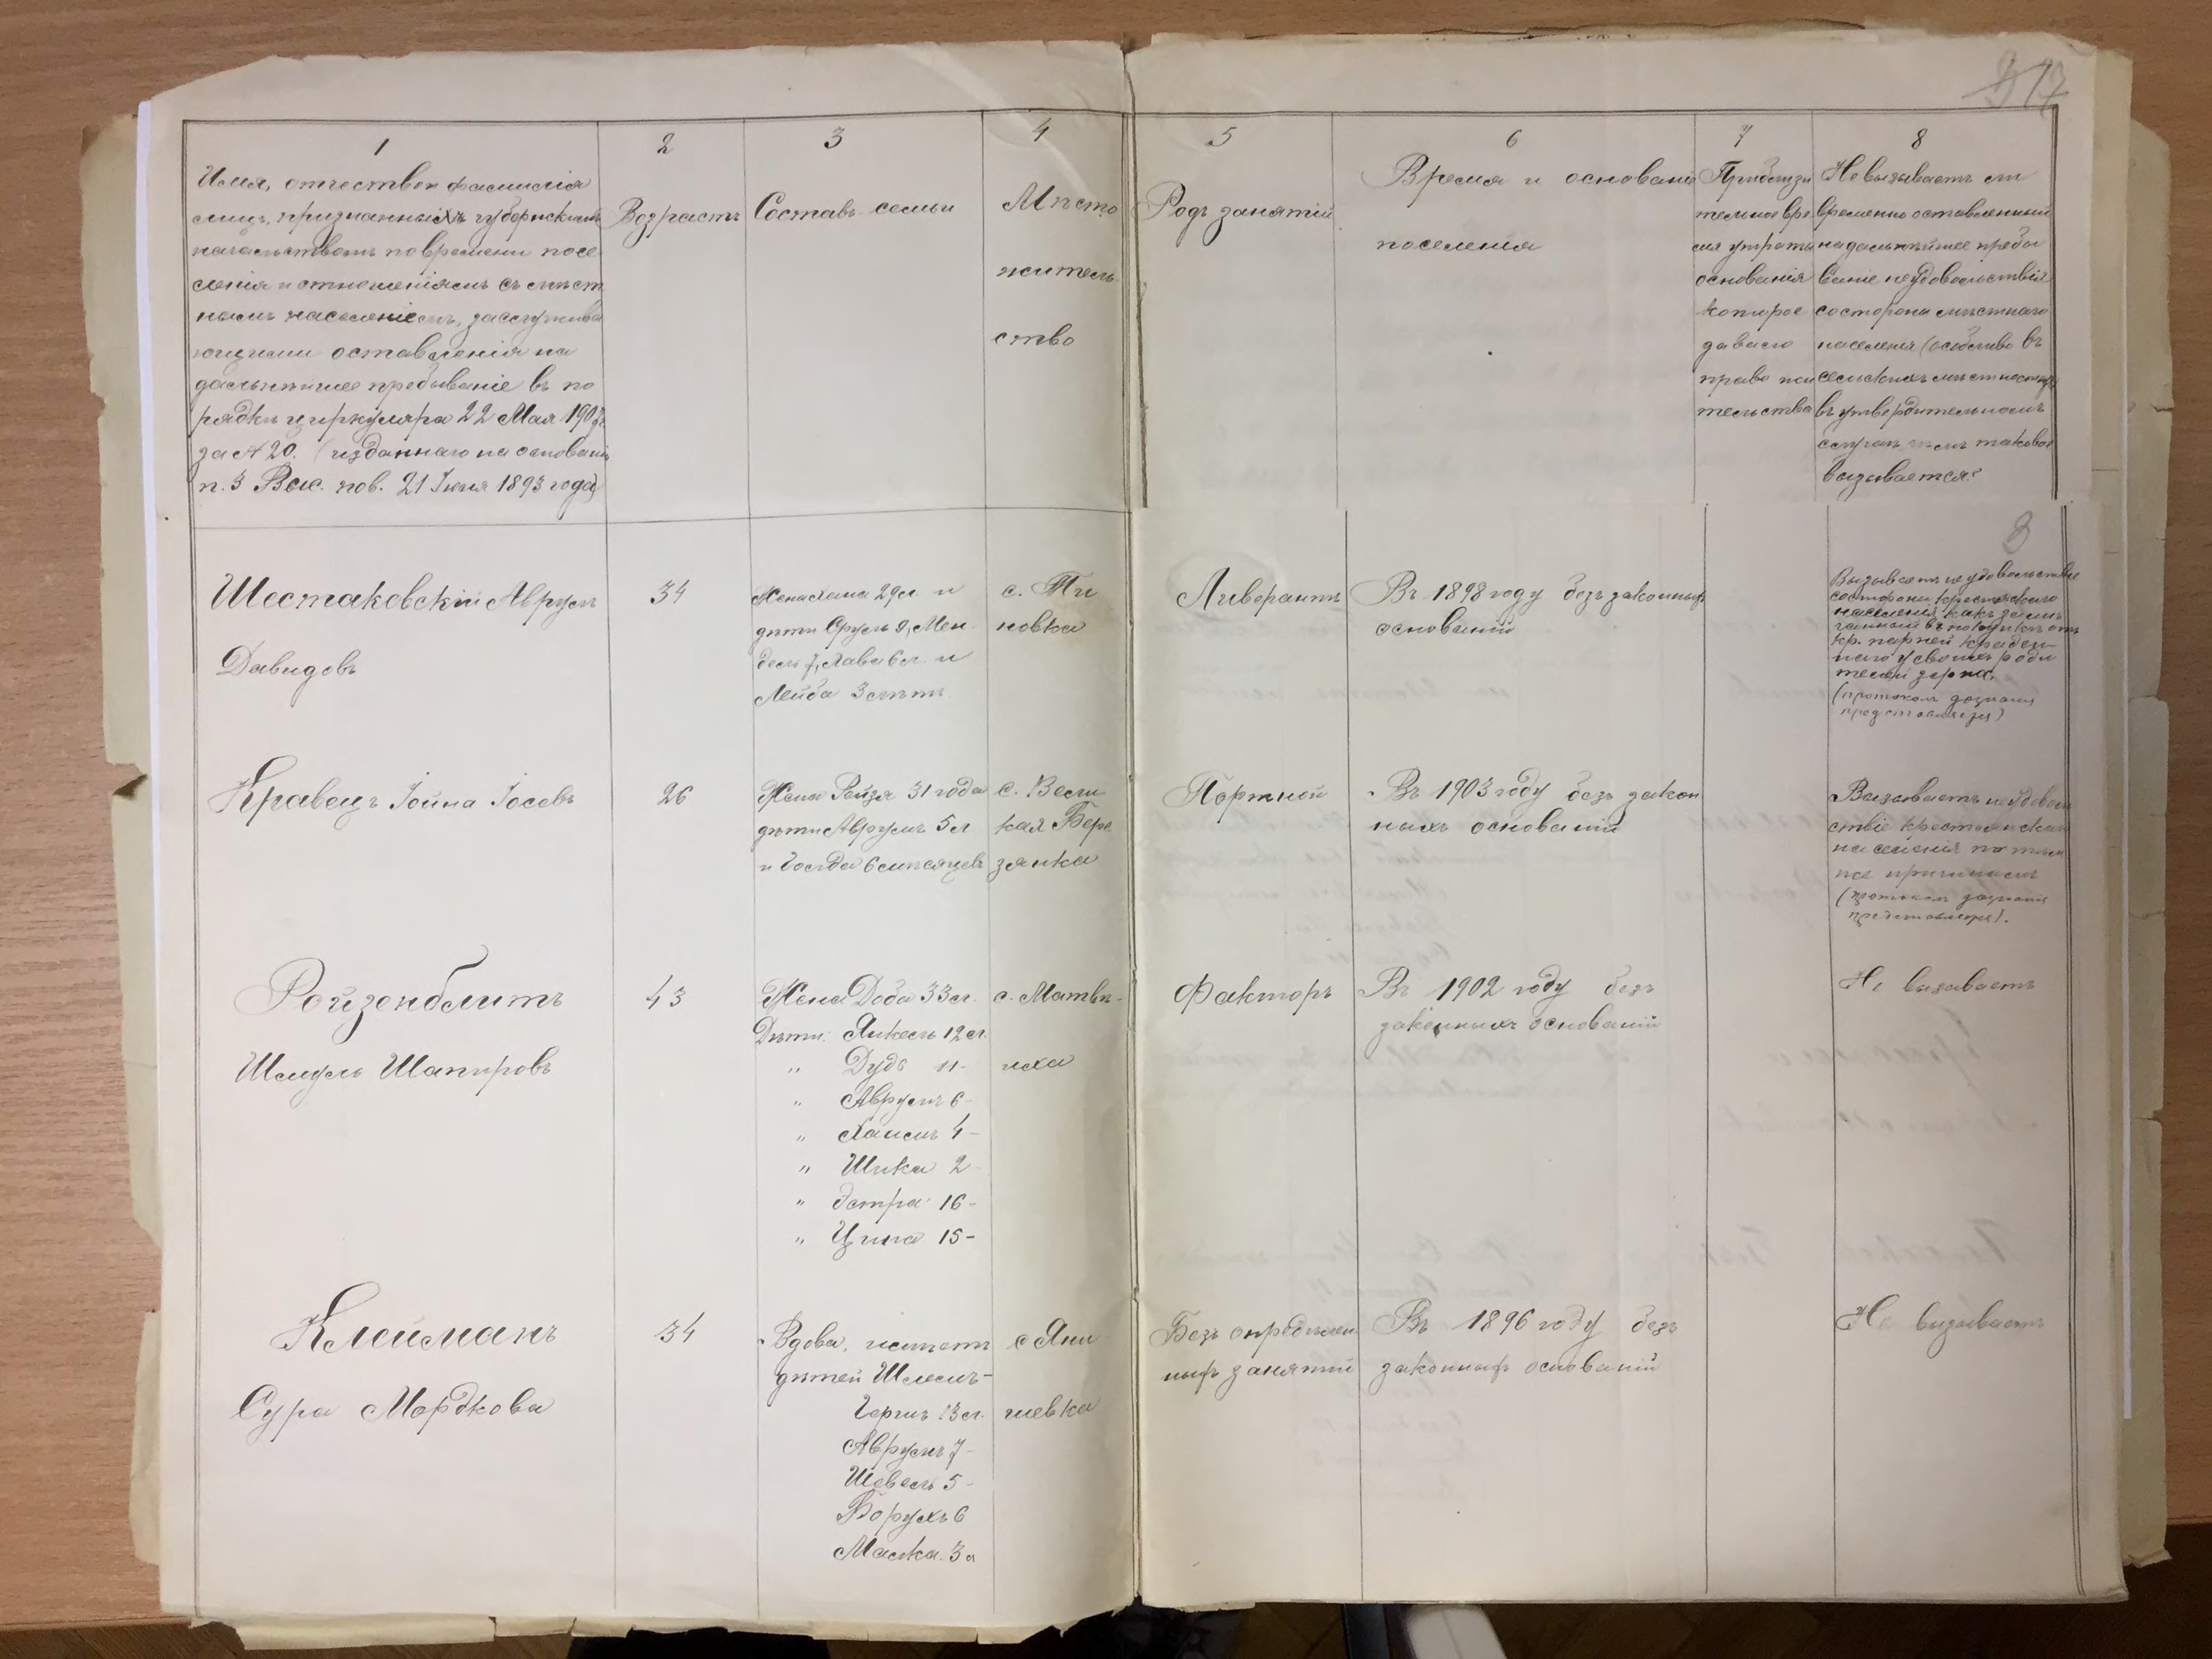 17
1
Имя, отчество и фамилія
лицъ, признанныхъ губернскимъ
начальствомъ по времени посе
ленія и отношеніямъ съ мѣст
нымъ населеніемъ, заслужива
ющими оставленія на
дальнѣйшее пребываніе въ по
рядкѣ циркуляра 22 Мая 1907 г.
за № 20. (изданнаго на основаніи
п. 3 Выс. пов. 21 Іюня 1893 года)
2
Возрастъ
3
Составъ семьи
4
Мѣсто
житель
ство
5
Родъ занятій
6
Время и основаніе
поселенія
7
Приблизи
тельное вре
мя утраты
основанія
которое
давало
право жи
тельства
8
Не вызываетъ ли
временно оставленный
на дальнѣйшее пребы
ваніе неудовольствія
со стороны мѣстнаго
населенія (особливо въ
сельскихъ мѣстностяхъ
въ утвердительномъ
случаѣ чѣмъ таковое
вызывается?
3
Шестаковскій Аврумъ
Давидовъ
34
Жена Хана 29 л. и
дѣти Сруль 9, Мен
дель 7, Хава 6 л. и
Лейба 3 лѣтъ
с. Пи
новка
Ливерантъ
Въ 1898 году безъ законныхъ
основаній
Вызываетъ неудовольствіе
со стороны крестьянскаго
населенія какъ замѣ
ченный въ покупкѣ отъ
кр. парней краден
наго у своихъ роди
телей зерна
(протоколъ дознанія
представляется)
Кравецъ Іойна Іосевъ
26
Жена Рейзя 31 года
дѣти Аврумъ 5 л
и Гольда 6 мѣсяцевъ
с. Вели
кая Бере
зянка
Портной
Въ 1903 году безъ закон
ныхъ основаній
Вызываетъ неудоволь
ствіе крестьянскаго
населенія по тѣмъ
же причинамъ
(протоколъ дознанія
представляется).
Ройзенблитъ
Шмуль Шапировъ
43
Жена Доба 33 л.
Дѣти: Янкель 12 л.
" Дудь 11 -
" Аврумъ 6 -
" Хаимъ 4 -
" Шика 2 -
" Эстра 16 -
" Ципа 15 -
с. Матвѣ-
иха
Факторъ
Въ 1902 году безъ
законныхъ основаній
Не вызываетъ
Клейманъ
Сура Мордкова
34
Вдова, имѣетъ
дѣтей Шлемъ-
Гершъ 13 л.
Аврумъ 7 -
Шевель 5 -
Борухъ 6
Малка 3 л
с Яни
шевка
Безъ опредѣлен
ныхъ занятій
Въ 1896 году безъ
законныхъ основаній
Не вызываетъ